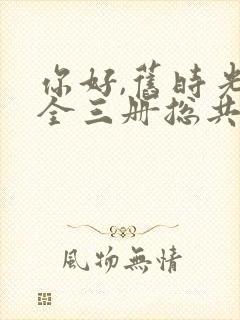 你好,舊時光
全三册总共
風物無情